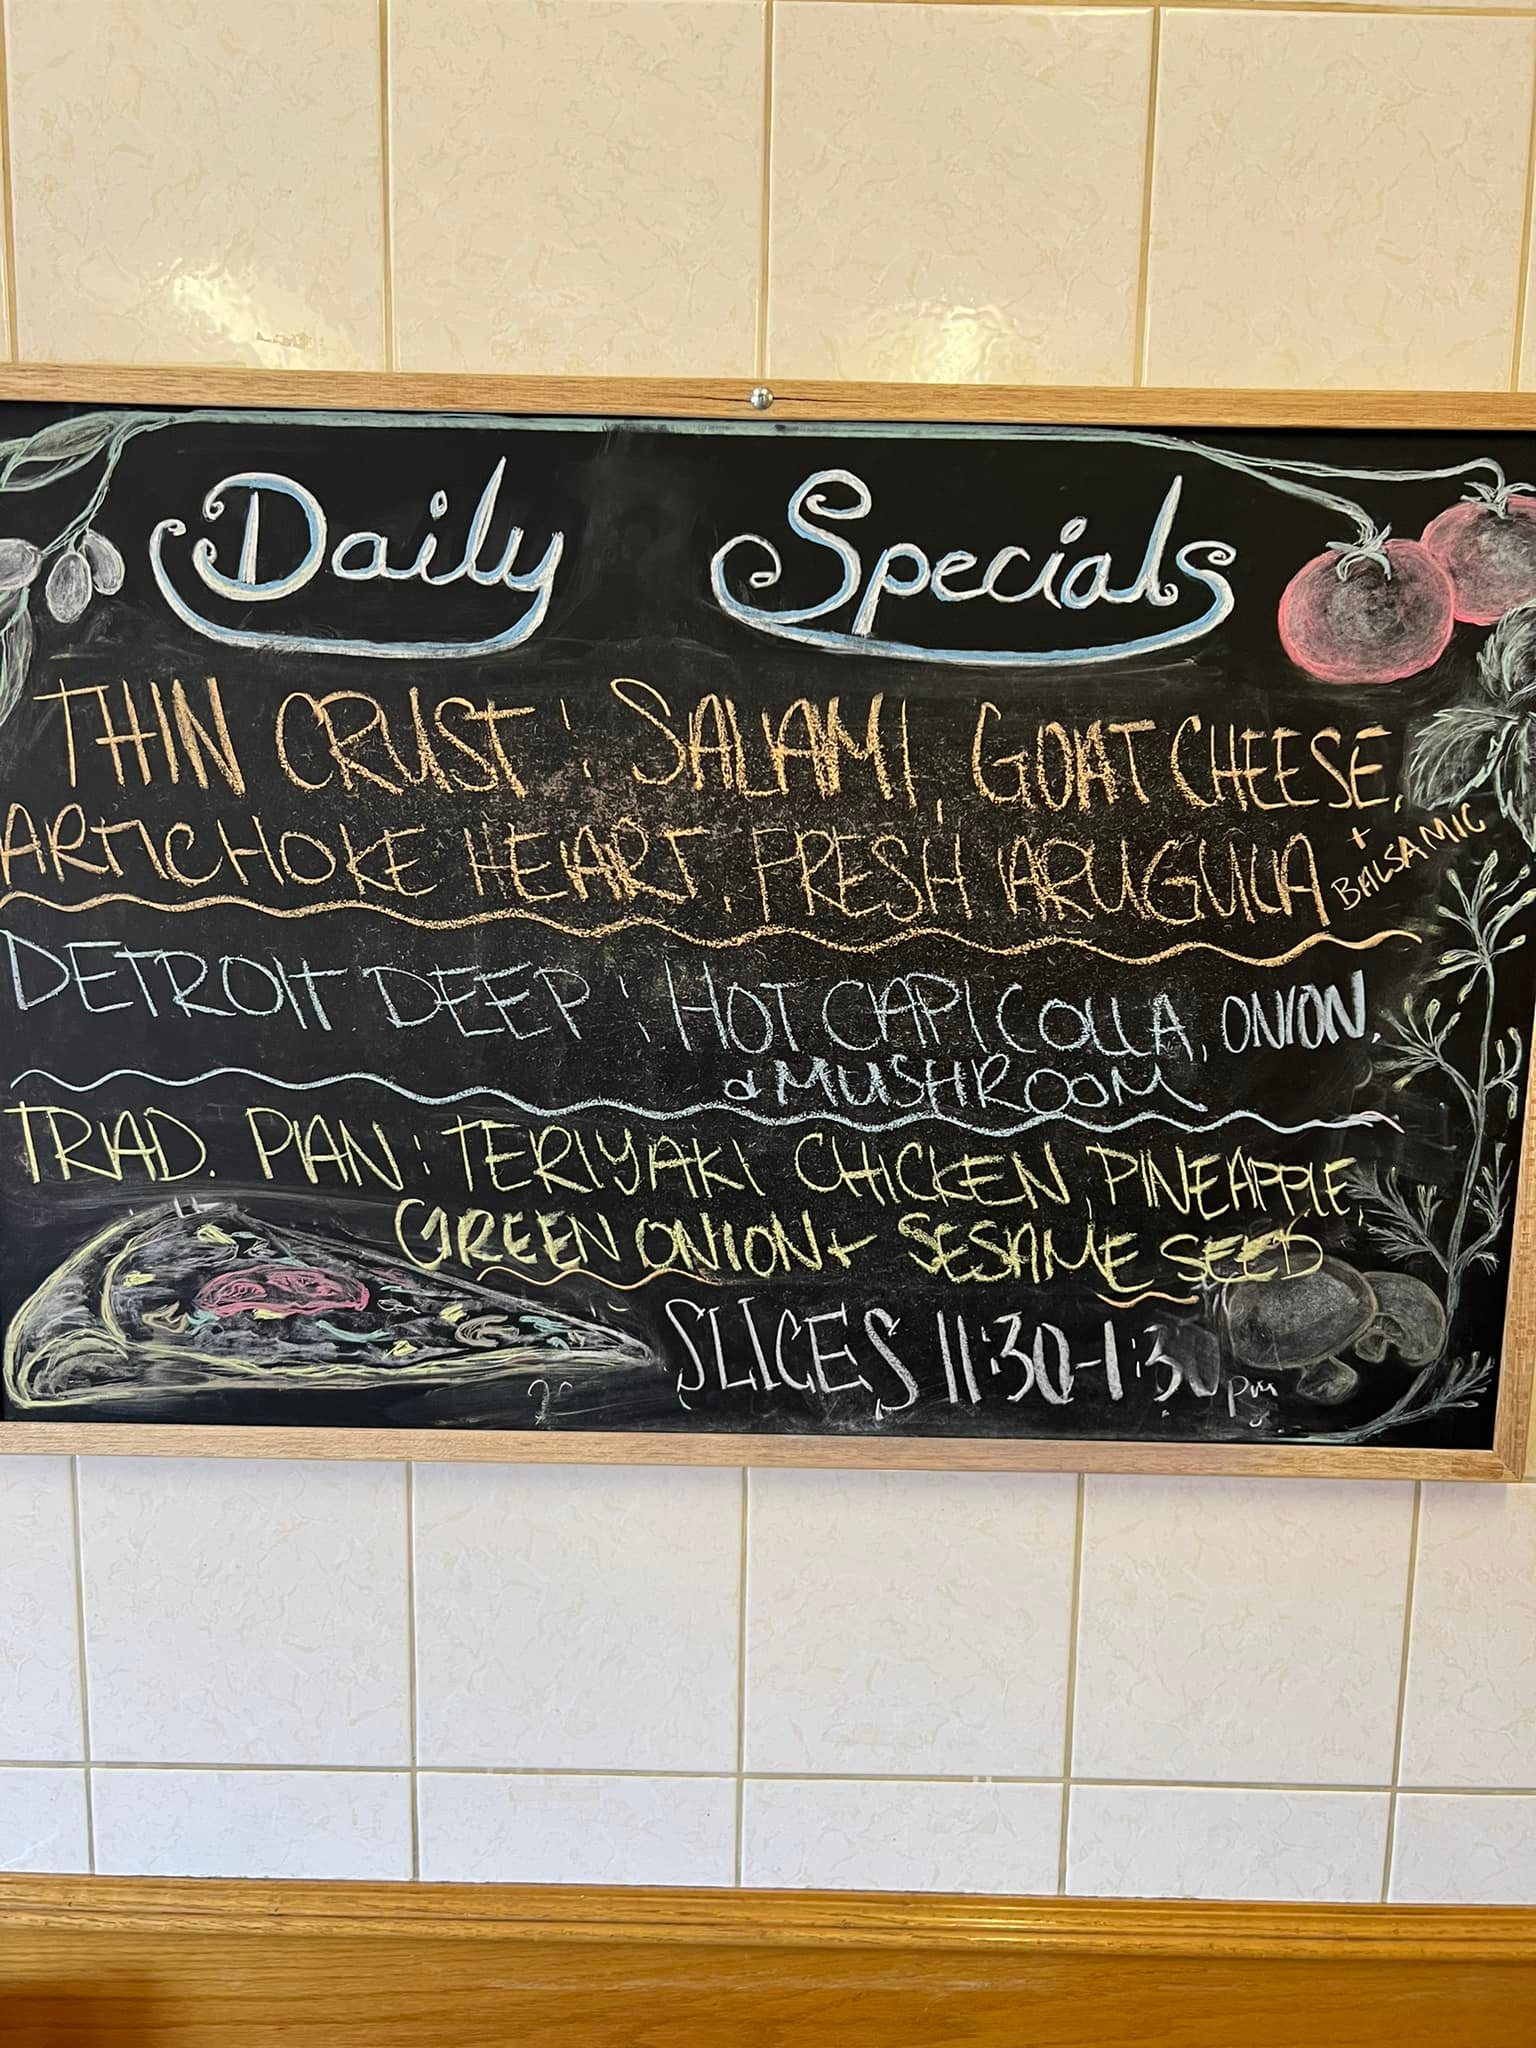 Daily Specials
THIN CRUST: SALAMI, GOAT CHEESE,
ARTICHOKE HEART, FRESH ARUGULA + BALSAMIC
DETROIT DEEP: HOT CAPICOLLA, ONION,
& MUSHROOM
TRAD. PAN: TERIYAKI CHICKEN, PINEAPPLE,
GREEN ONION + SESAME SEED
SLICES 11:30-1:30